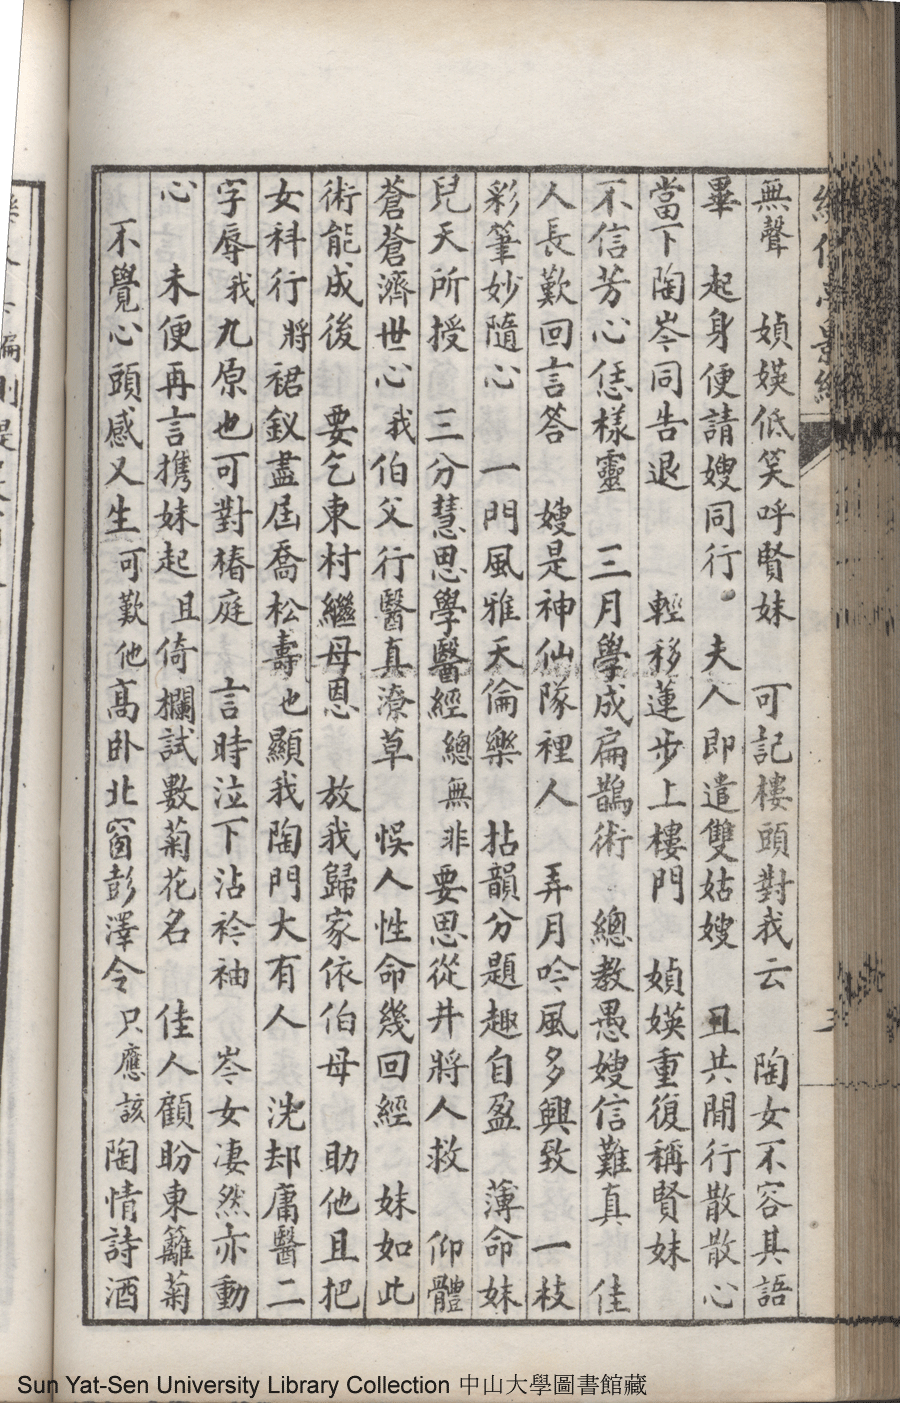 無聲　媜媖低笑呼賢妹　可記樓頭對我云　陶女不容其語
畢　起身便請嫂同行　夫人即遣雙姑嫂　且共閒行散散心
當下陶岑同告退　輕移蓮步上樓門　媜媖重復稱賢妹
不信芳心恁樣靈　三月學成扁鵲術　總教愚嫂信難真　佳
人長歎回言答　嫂是神仙隊裡人　弄月吟風多興致　一枝
彩筆妙隨心　一門風雅天倫樂　拈韻分題趣自盈　薄命妹
兒天所授　三分慧思學醫經　總無非要思從井將人救　仰體
蒼蒼濟世心　我伯父行醫真潦草　悞人性命幾回經　妹如此
術能成後　要乞東村繼母恩　放我歸家依伯母　助他且把
女科行　將裙釵盡屆喬松壽　也顯我陶門大有人　洗却庸醫二
字辱　我九原也可對椿庭　言時泣下沾衿袖　岑女凄然亦動
心　未便再言攜妹起　且倚欄試數菊花名　佳人顧盼東籬菊
不覺心頭感又生　可歎他高卧北窗彭澤令　只應該陶情詩酒
Sun Yat-Sen University Library Collection 中山大學圖書館藏